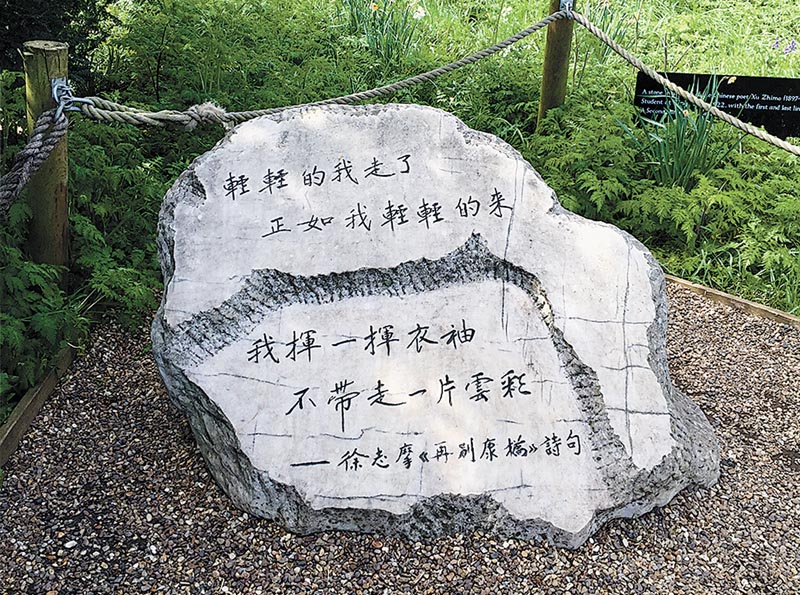 輕輕的我走了
正如我輕輕的来
我揮一揮衣袖
不帶走一片雲彩
——徐志摩《再别康橋》詩句
A stone hinese poet Xu Zhimo (1897-
Student 22. with the first and last li
A Secon